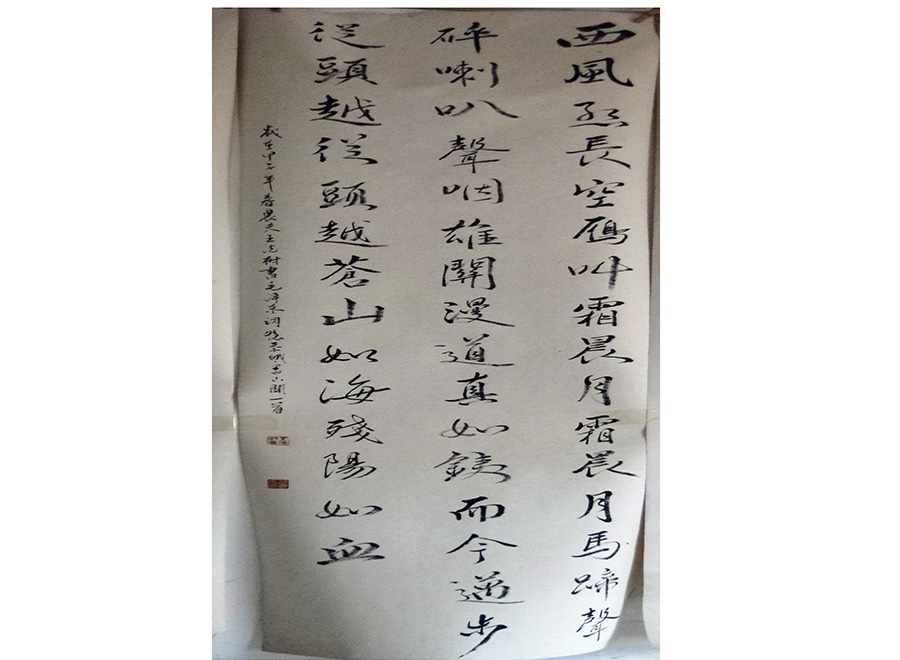 西風烈長空雁叫霜晨月霜晨月馬蹄聲
碎喇叭聲咽雄關漫道真如鐵而今邁步
從頭越從頭越蒼山如海殘陽如血
歲在甲子年春 王志樹書毛澤東詞憶秦娥婁山關一首